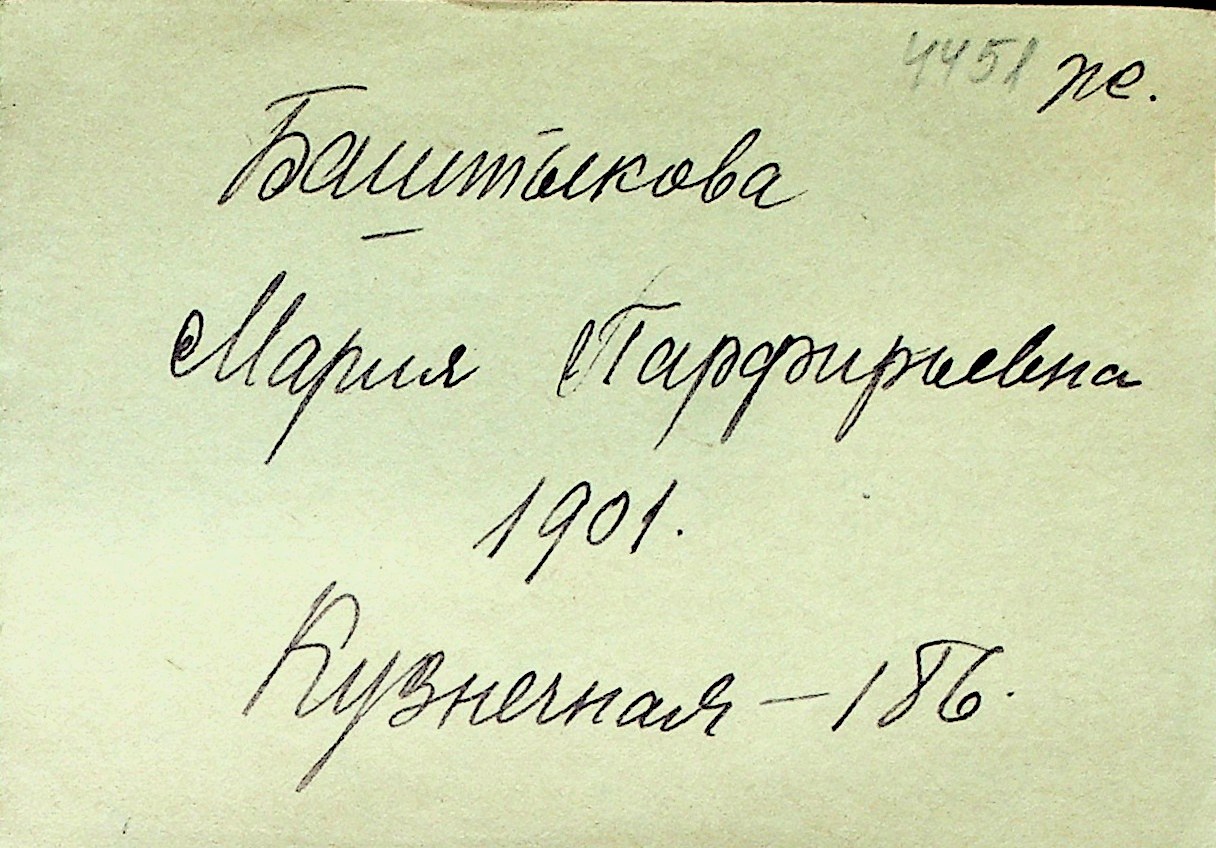 4451 же.
Баштыкова
Мария Парфирьевна
1901.
Кузнечная – 186.